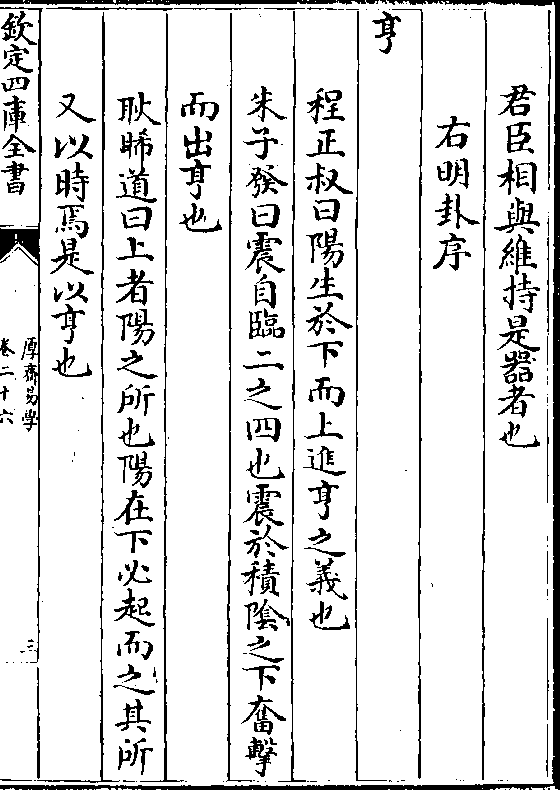 君臣相與維持是器者也
右明卦序
亨
程正叔曰陽生於下而上進亨之義也
朱子發曰震自臨二之四也震於積陰之下奮擊
而出亨也
耿睎道曰上者陽之所也陽在下必起而之其所
又以時焉是以亨也
欽定四庫全書
厚齋易學
卷二十六
三